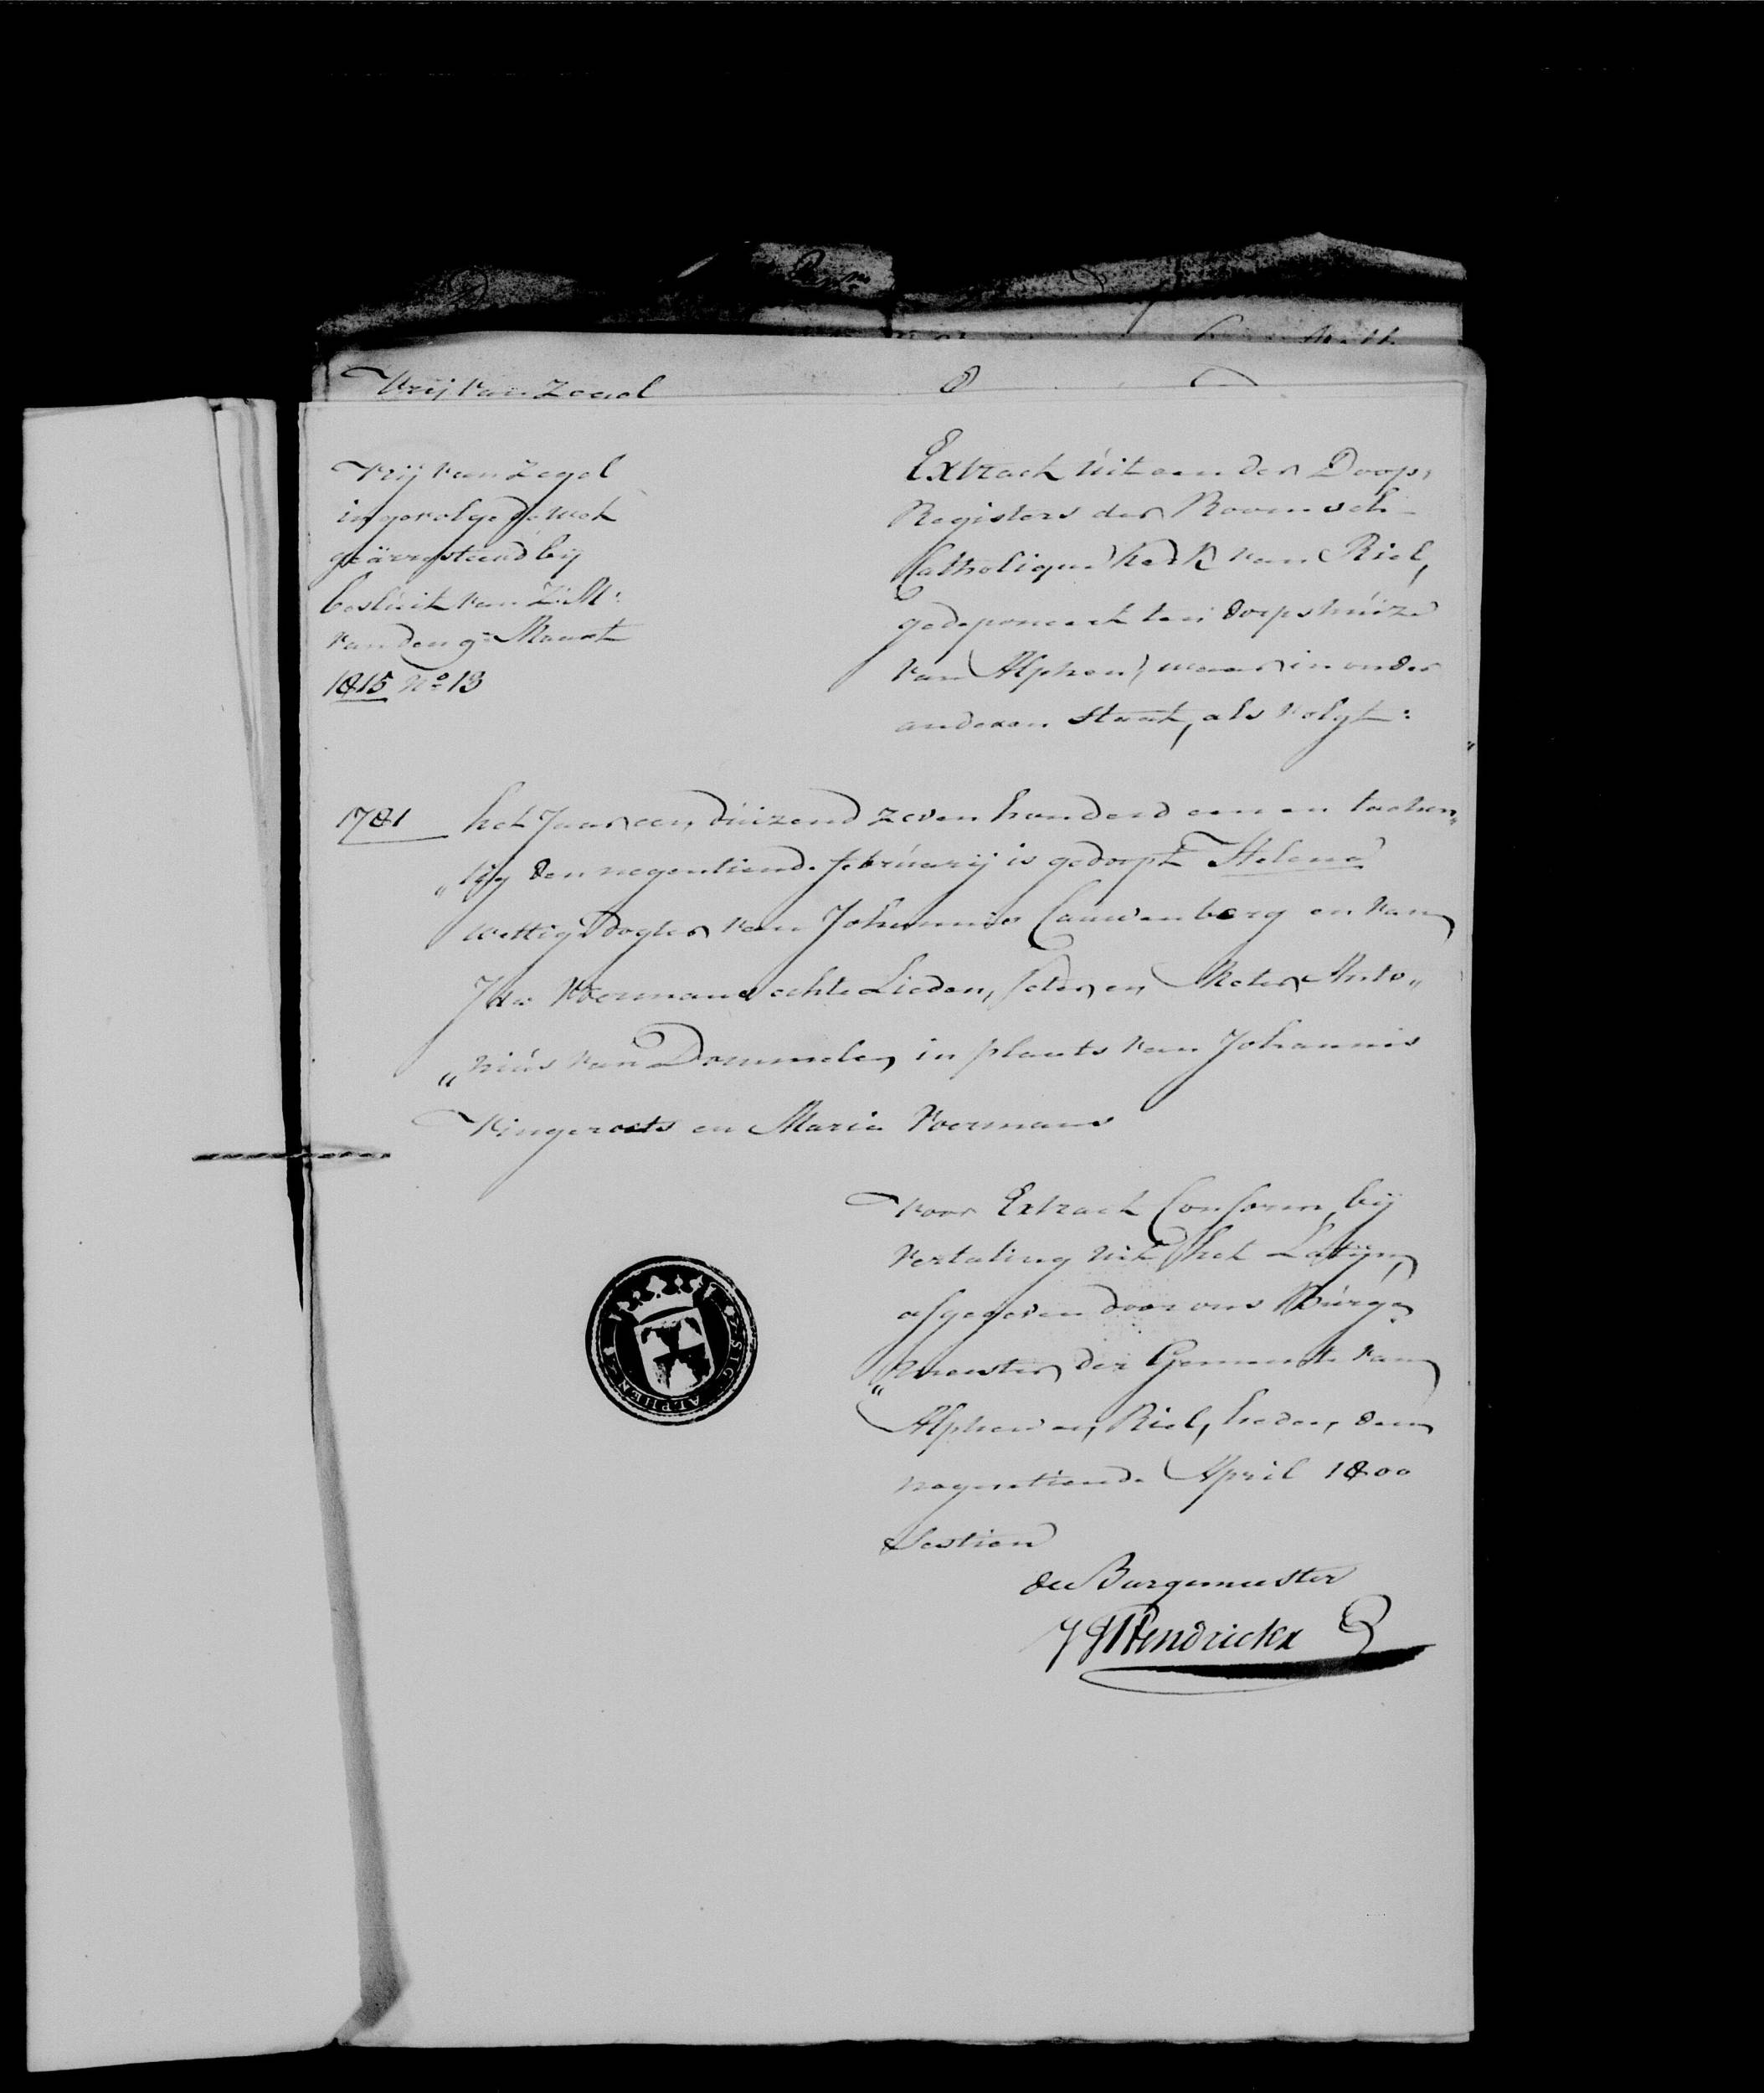 Vrij van Zegel
Vrij van Zegel
ingevolge de Wet
gearresteerd bij
besluit van Z: M:
van den 9e Maart
1815 No 13
Extract uit een der Doop,
Registers der Roomsch
Catholique kerk van Riel,
gedeponeert ten dorpshuize
van Alphen, waar in onder
anderen Staat, als volgt:
1781 het Jaar een duizend zeven honderd een en tachen„
„tig den negentiende februarij is gedoopt Helena
wettige Dogter van Johannis Cauwenberg en van
Voermans echte Lieden, Peter en Meter Anto„
„nius van Dommelen in plaats van Johannis
Vingeroets en Maria Voermans
voor Extract Conform bij
vertaling uit het Latijn,
afgegeven door ons Burge„
„meester der Gemeente van
Alphen en Riel, heden, den
negentiende April 1800
Sestien
SIG ALPHEN
de Burgemeester
J Hendrickx